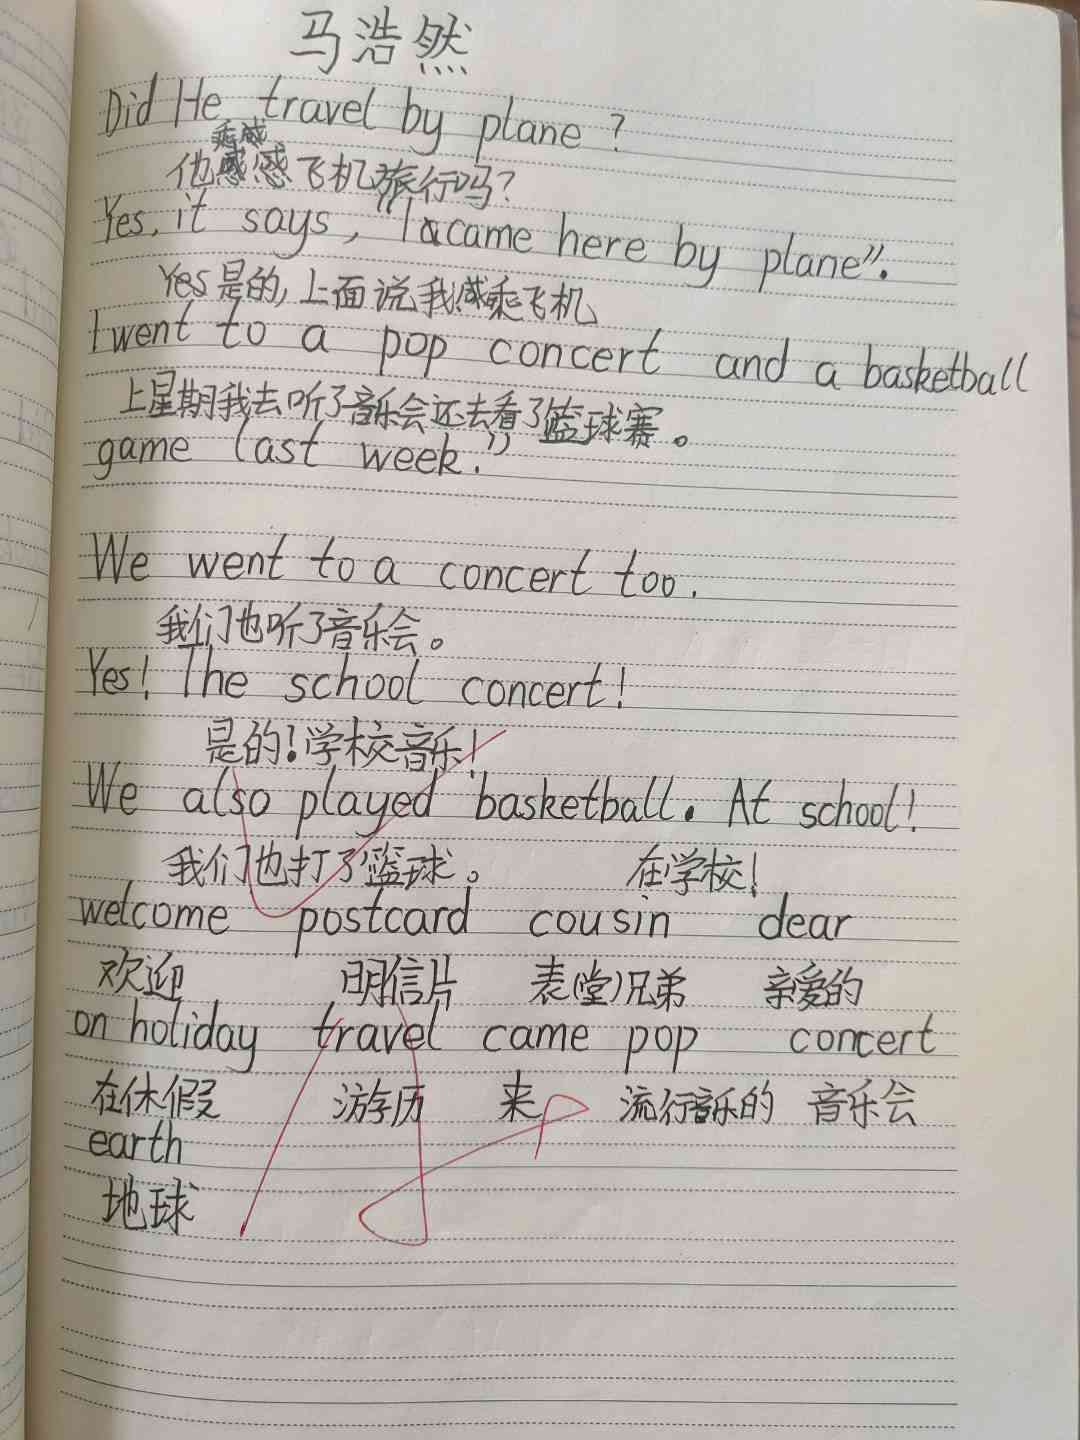 马浩然
Did He travel by plane ?
乘感
他感感飞机旅行吗?
Yes, it says, "I came here by plane".
Yes是的,上面说我感乘飞机
I went to a pop concert and a basketball
上星期我去听了音乐会还去看了篮球赛。
game last week."
We went to a concert too.
我们也听了音乐会。
Yes! The school concert!
是的!学校音乐!
We also played basketball. At school!
我们也打了篮球。 在学校!
welcome postcard cousin dear
欢迎 明信片 表(堂)兄弟 亲爱的
on holiday travel came pop concert
在休假 游历 来 流行音乐的 音乐会
earth
地球